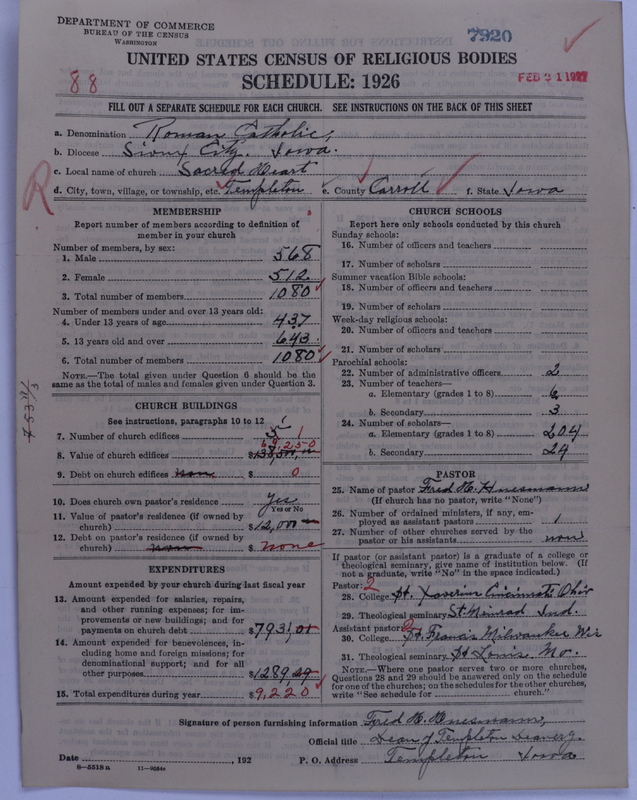 DEPARTMENT OF COMMERCE
BUREAU OF THE CENSUS
WASHINGTON
7920
UNITED STATES CENSUS OF RELIGIOUS BODIES
SCHEDULE: 1926
88
FEB 21 1927
FILL OUT A SEPARATE SCHEDULE FOR EACH CHURCH. SEE INSTRUCTIONS ON THE BACK OF THIS SHEET
a. Denomination Roman Catholic
b. Diocese Sioux City. Iowa.
c. Local name of church Sacred Heart
d. City, town, village, or township, etc. Templeton e. County Carroll f. State Iowa
R
MEMBERSHIP
Report number of members according to definition of member in your church
Number of members, by sex:
1. Male 568
2. Female 512
3. Total number of members 1080
Number of members under and over 13 years old:
4. Under 13 years of age 437
5. 13 years old and over 643
6. Total number of members 1080
NOTE.—The total given under Question 6 should be
same as the total of males and females given under Question 3.
CHURCH BUILDINGS
See instructions, paragraphs 10 to 12
7. Number of church edifices 1
69,250
8. Value of church edifices $138,500,
9. Debt on church edifices none $ 0
10. Does church own pastor's residence Yes
Yes or No
11. Value of pastor's residence (if owned by
church) $12,000
12. Debt on pastor's residence (if owned by
church) none $ none
EXPENDITURES
Amount expended by your church during last fiscal year
13. Amount expended for salaries, repairs,
and other running expenses; for im-
provements or new buildings; and for
payments on church debt $7931,01
14. Amount expended for benevolences, in-
cluding home and foreign missions; for
denominational support; and for all
other purposes $1289,29
15. Total expenditures during year $9,220
CHURCH SCHOOLS
Report here only schools conducted by this church
Sunday schools:
16. Number of officers and teachers
17. Number of scholars
Summer vacation Bible schools:
18. Number of officers and teachers
19. Number of scholars
Week-day religious schools:
20. Number of officers and teachers
21. Number of scholars
Parochial schools:
22. Number of administrative officers 2
23. Number of teachers—
a. Elementary (grades 1 to 8) 6
b. Secondary 3
24. Number of scholars—
a. Elementary (grades 1 to 8) 204
b. Secondary 24
PASTOR
25. Name of pastor Fred H.
(If church has no pastor, write "None")
26. Number of ordained ministers, if any, em-
ployed as assistant pastors 1
27. Number of other churches served by the
pastor or his assistants none
If pastor (or assistant pastor) is a graduate of a college or
theological seminary, give name of institution below. (If
not a graduate, write "No" in the space indicated.)
Pastor: 2
28. College St. Xaverius Cincinnati Ohio
29. Theological seminary St. Meinrad Ind.
Assistant pastor:
30. College St. Francis Milwaukee Wis
31. Theological seminary St Louis. Mo.
NOTE.—Where one pastor serves two or more churches,
Questions 28 and 29 should be answered only on the schedule
for one of the churches; on the schedules for the other churches,
write "See schedule for church."
Signature of person furnishing information Fred H.
Official title Dean of Templeton Deanery.
Date , 192 P. O. Address Templeton Iowa
8—5518 a 11—9054